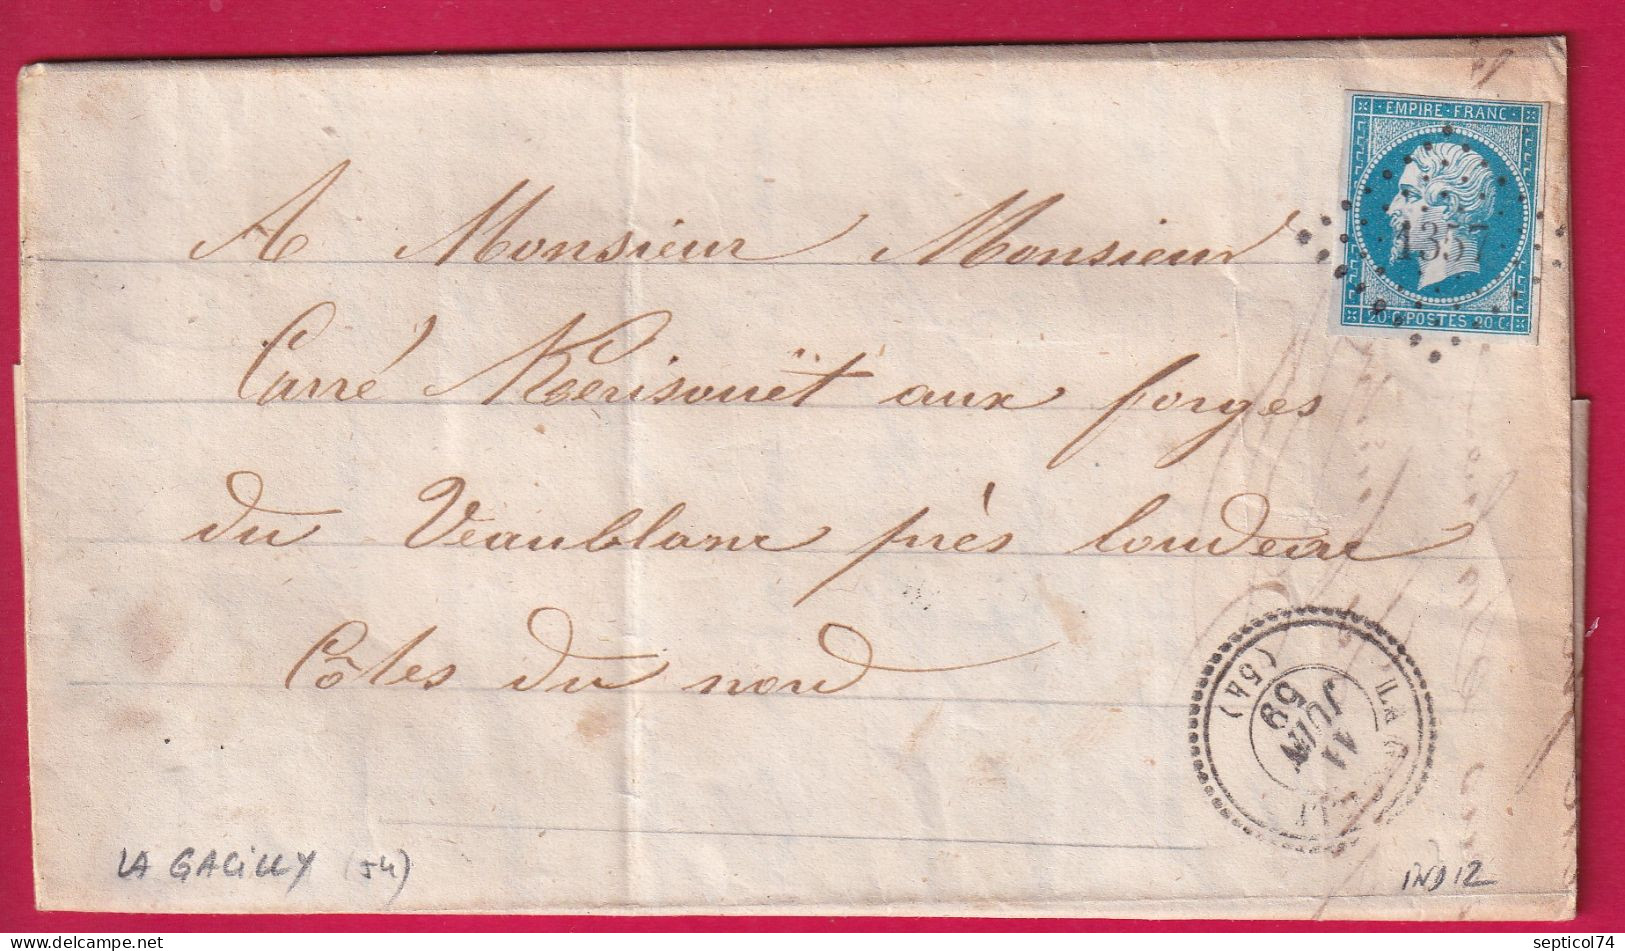 EMPIRE FRANC
1357
20 C POSTES 20 C
A Monsieur Monsieur
Carré Kerisouët aux forges
du Veaublanc près loudeac
Côtes du nord
(54)
11
JUIN
59
LA GACILLY (54)
IND 12
delcampe.net
septicol74